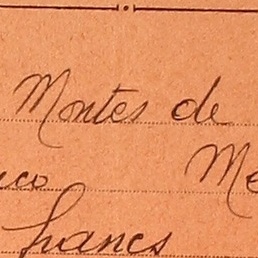 Montes de
ico Me
francs